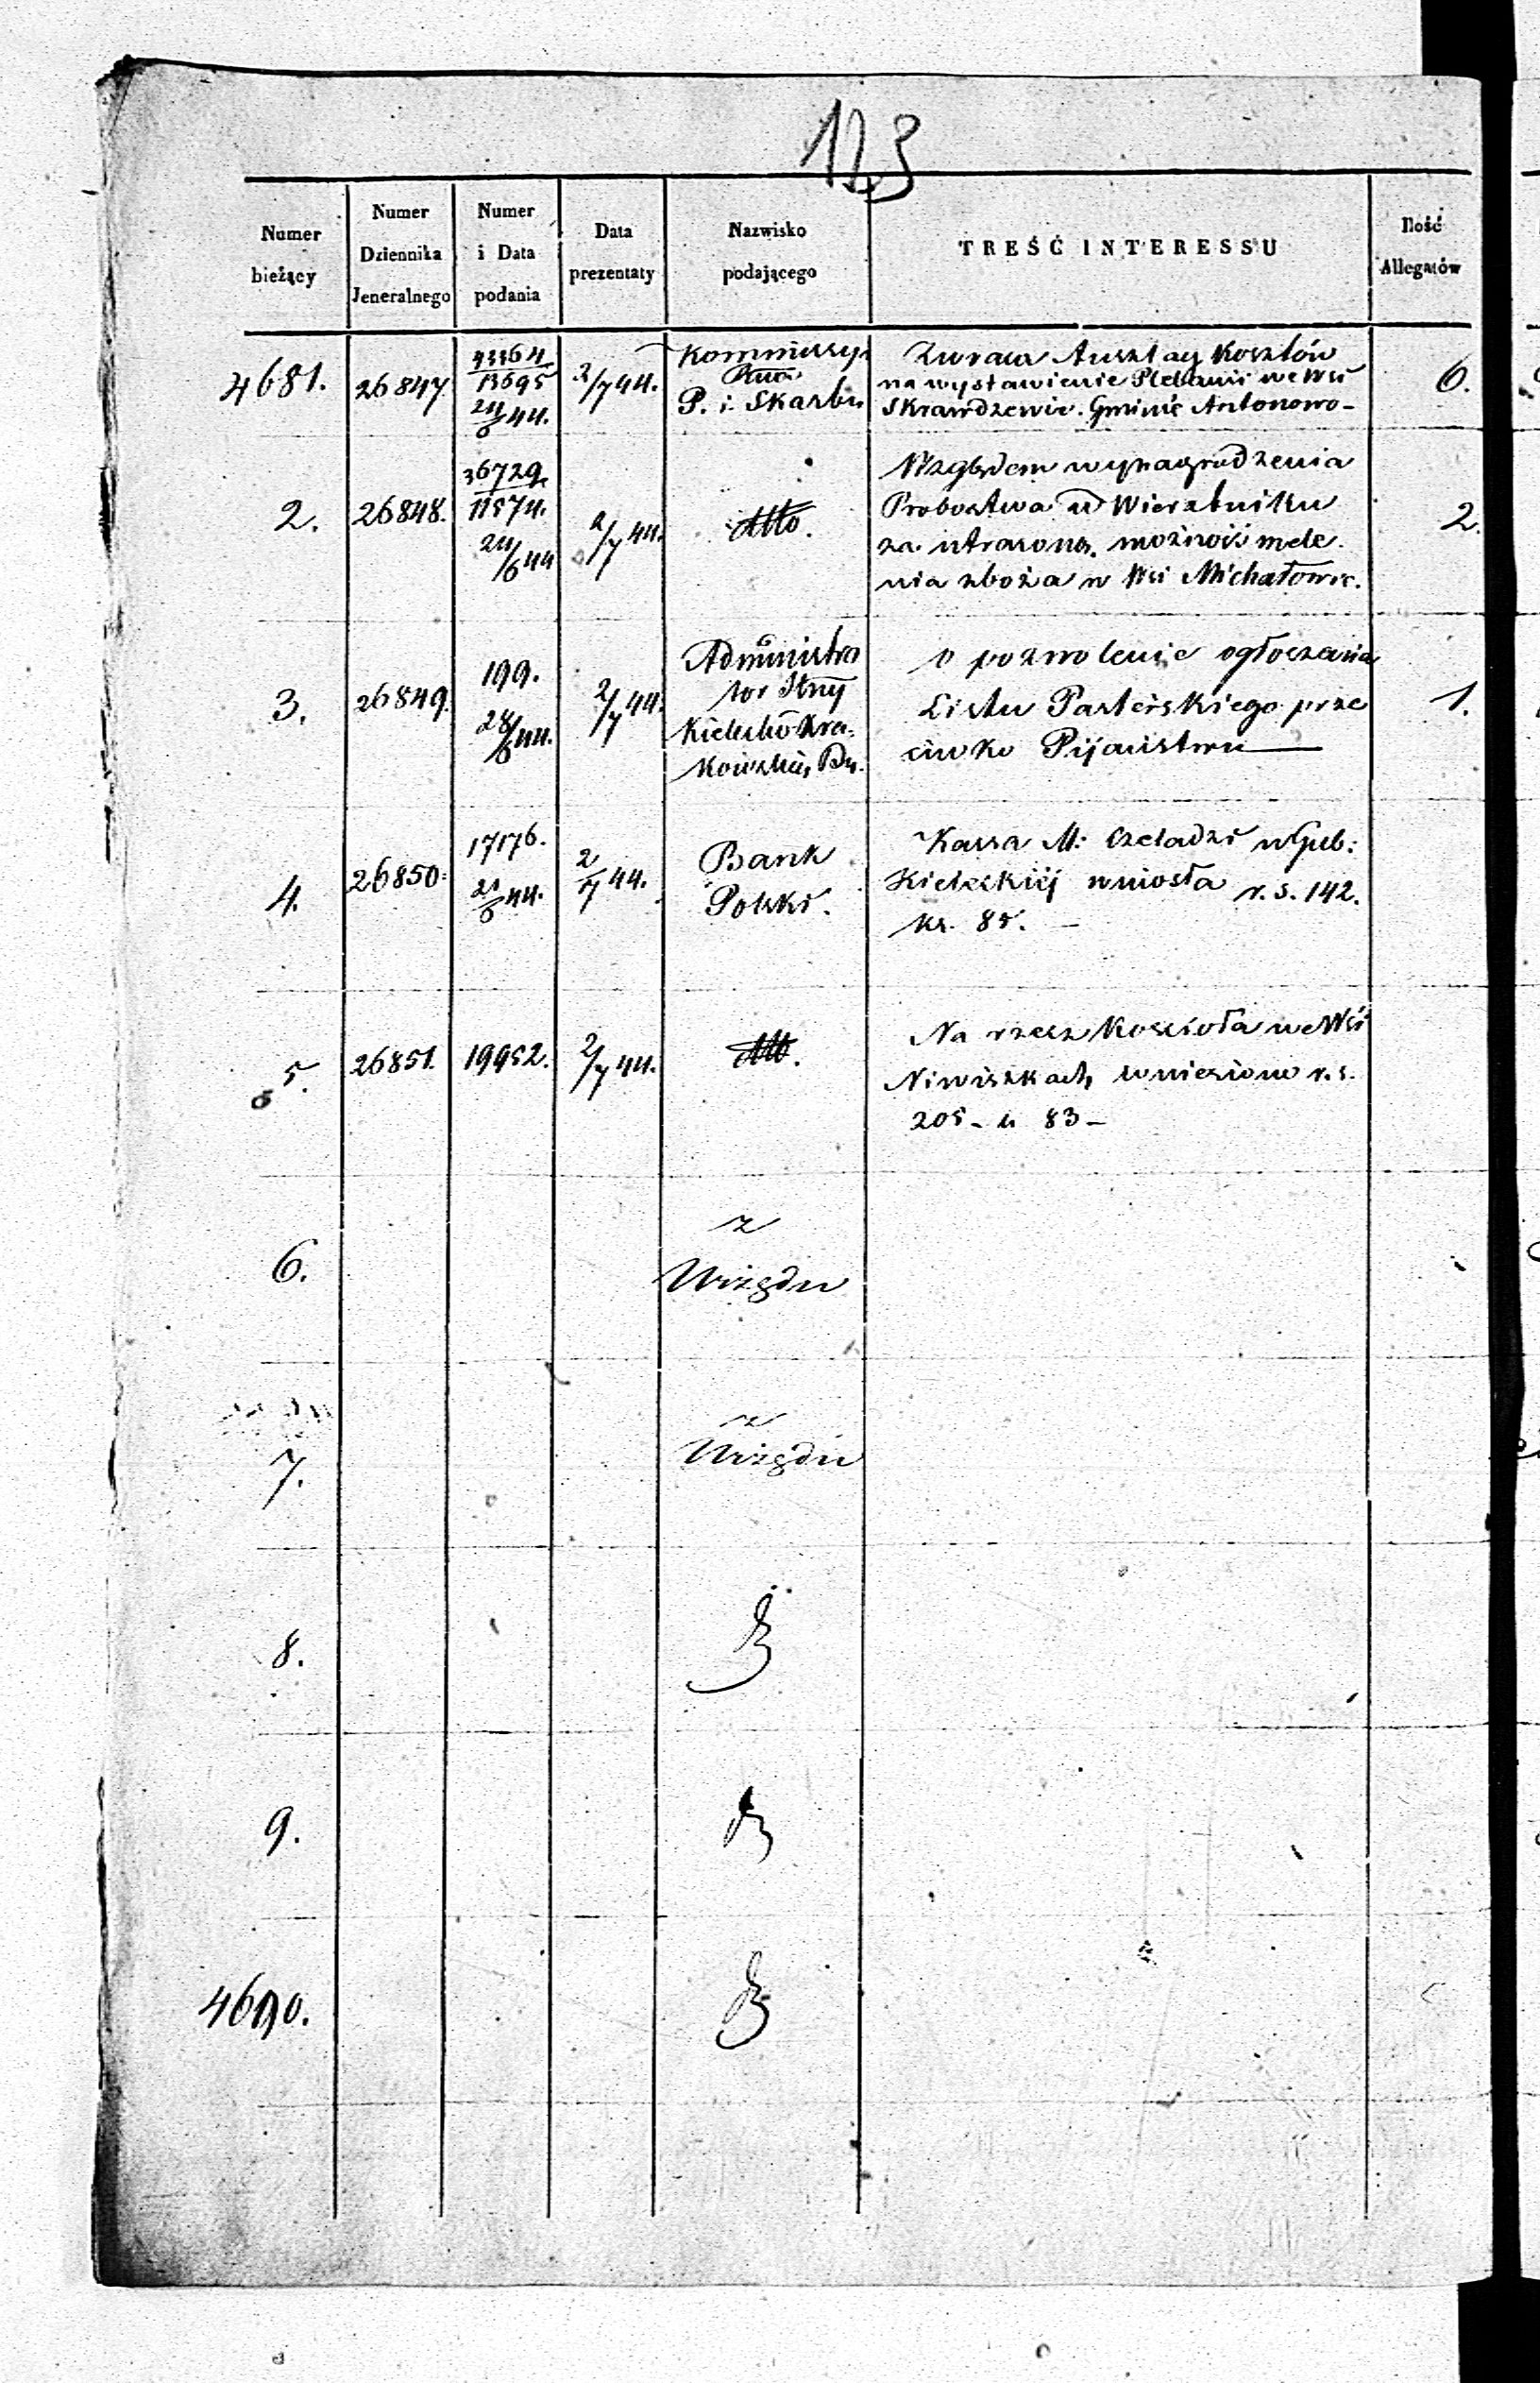 123
Numer bieżący
Numer Dziennika Jeneralnego
Numer i Data podania
Data prezentaty
Nazwisko podającego
TREŚĆ INTERESSU
Ilość Allegatów
4681.
26847
13695
24/6 44.
2/7 44.
Kommissyi
P. i Skarbu
Zwraca Anszlag Kosztów
na wystawienie Plebanii we Wsi
Skrawdzewie. Gminie Antonowo-
6.
2.
26848.
36729.
11574.
24/6 44
2/7 44.
dtto.
Względem wynagrodzenia
Probostwa w Wierzbniku
za utraconą możność mele-
nia zboża w Wsi Michałowie.
2.
3.
26849.
199.
28/6 44.
2/7 44.
Administra
tor
Kielecko Kra-
kowskiej Dy.
o pozwolenie ogłoszenia
Listu Pasterskiego prze
ciwko Pijaństwu
1.
4.
26850.
17176.
21/6 44.
2/7 44.
Bank
Polski.
Kassa M: Czeladzi w Gub:
Kieleckiej wniosła r.s. 142.
kr. 85.
5.
26851.
19952.
2/7 44.
dtto.
Na rzecz Kościoła we Wsi
Niwiskach wniesiono r.s.
205 - k 83 -
6.
z
Urzędu
7.
z
Urzędu
8.
9.
4690.